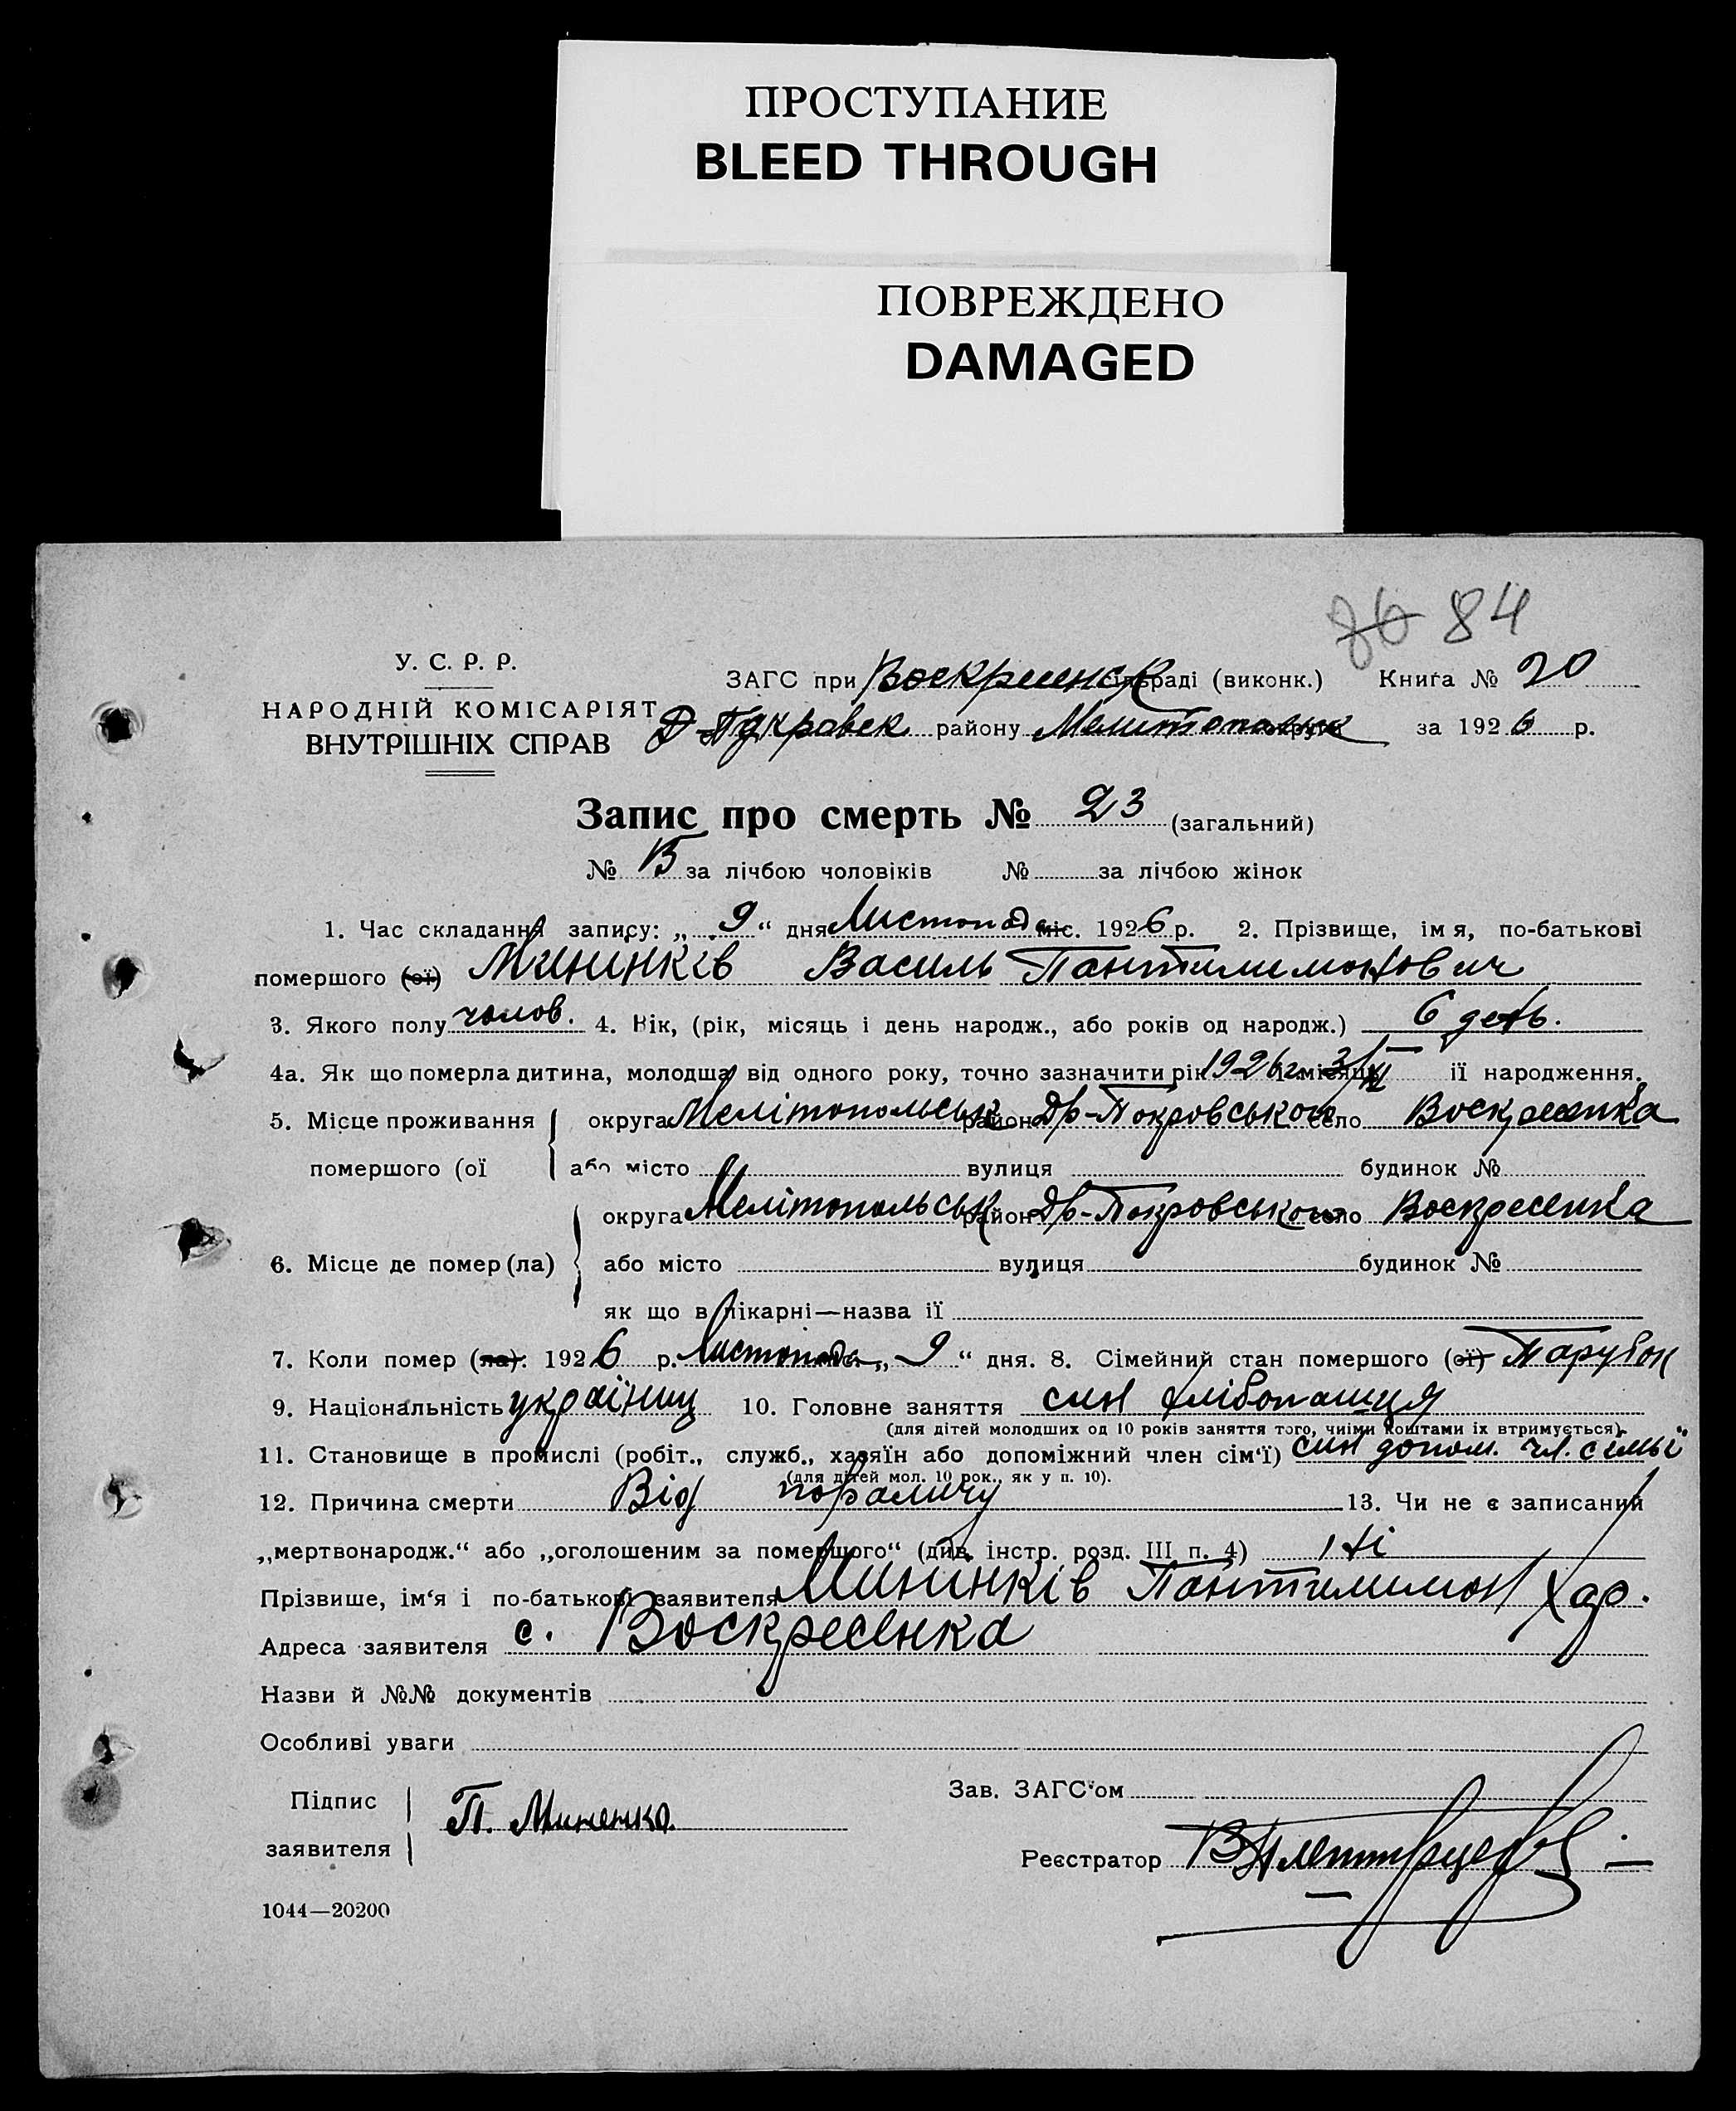 ПРОСТУПАНИЕ
BLEED THROUGH
ПОВРЕЖДЕНО
DAMAGED
84
У. С. Р. Р.
НАРОДНІЙ КОМІСАРІЯТ
ВНУТРІШНІХ СПРАВ
ЗАГС при Воскресенск сільраді (виконк.) Книга № 20
Д-Покровск району Мелитопольск округи за 1926 р.
Запис про смерть № 23 (загальний)
№ за лічбою чоловіків № за лічбою жінок
1. Час складання запису: „ 9 “ дня Листопада міс. 1926 р. 2. Прізвище, імя, по-батькові
помершого (ої) Мининків Василь Пантилимонович
3. Якого полу чолов. 4. Вік, (рік, місяць і день народж., або років од народж.) 6 день.
4а. Як що померла дитина, молодша від одного року, точно зазначити рік 1926 г. і місяць 3/XI ії народження.
5. Місце проживання округа Мелітопольськ район Др-Покровського село Воскресенка
помершого (ої або місто вулиця будинок №
округа Мелітопольськ район Др-Покровського село Воскресенка
6. Місце де помер (ла) або місто вулиця будинок №
як що в лікарні—назва ії
7. Коли помер (ла): 1926 р. Листопада „ 9 “ дня. 8. Сімейний стан помершого (ої) Парубок
9. Національність українец 10. Головне заняття син хлібопашця
(для дітей молодших од 10 років заняття того, чиіми коштами іх втримується)
11. Становище в промислі (робіт., служб., хазяїн або допоміжний член сім'ї) син допом. чл. семьї
(для дітей мол. 10 рок., як у п. 10).
12. Причина смерти Від пораличу 13. Чи не є записаний
„мертвонародж.“ або „оголошеним за помершого“ (див. інстр. розд. III п. 4) Ні
Прізвище, ім'я і по-батькові заявителя Мининків Пантилимон Хар.
Адреса заявителя с. Воскресенка
Назви й №№ документів
Особливі уваги
Підпис
заявителя П. Миненко
Зав. ЗАГС'ом
Реєстратор
1044—20200